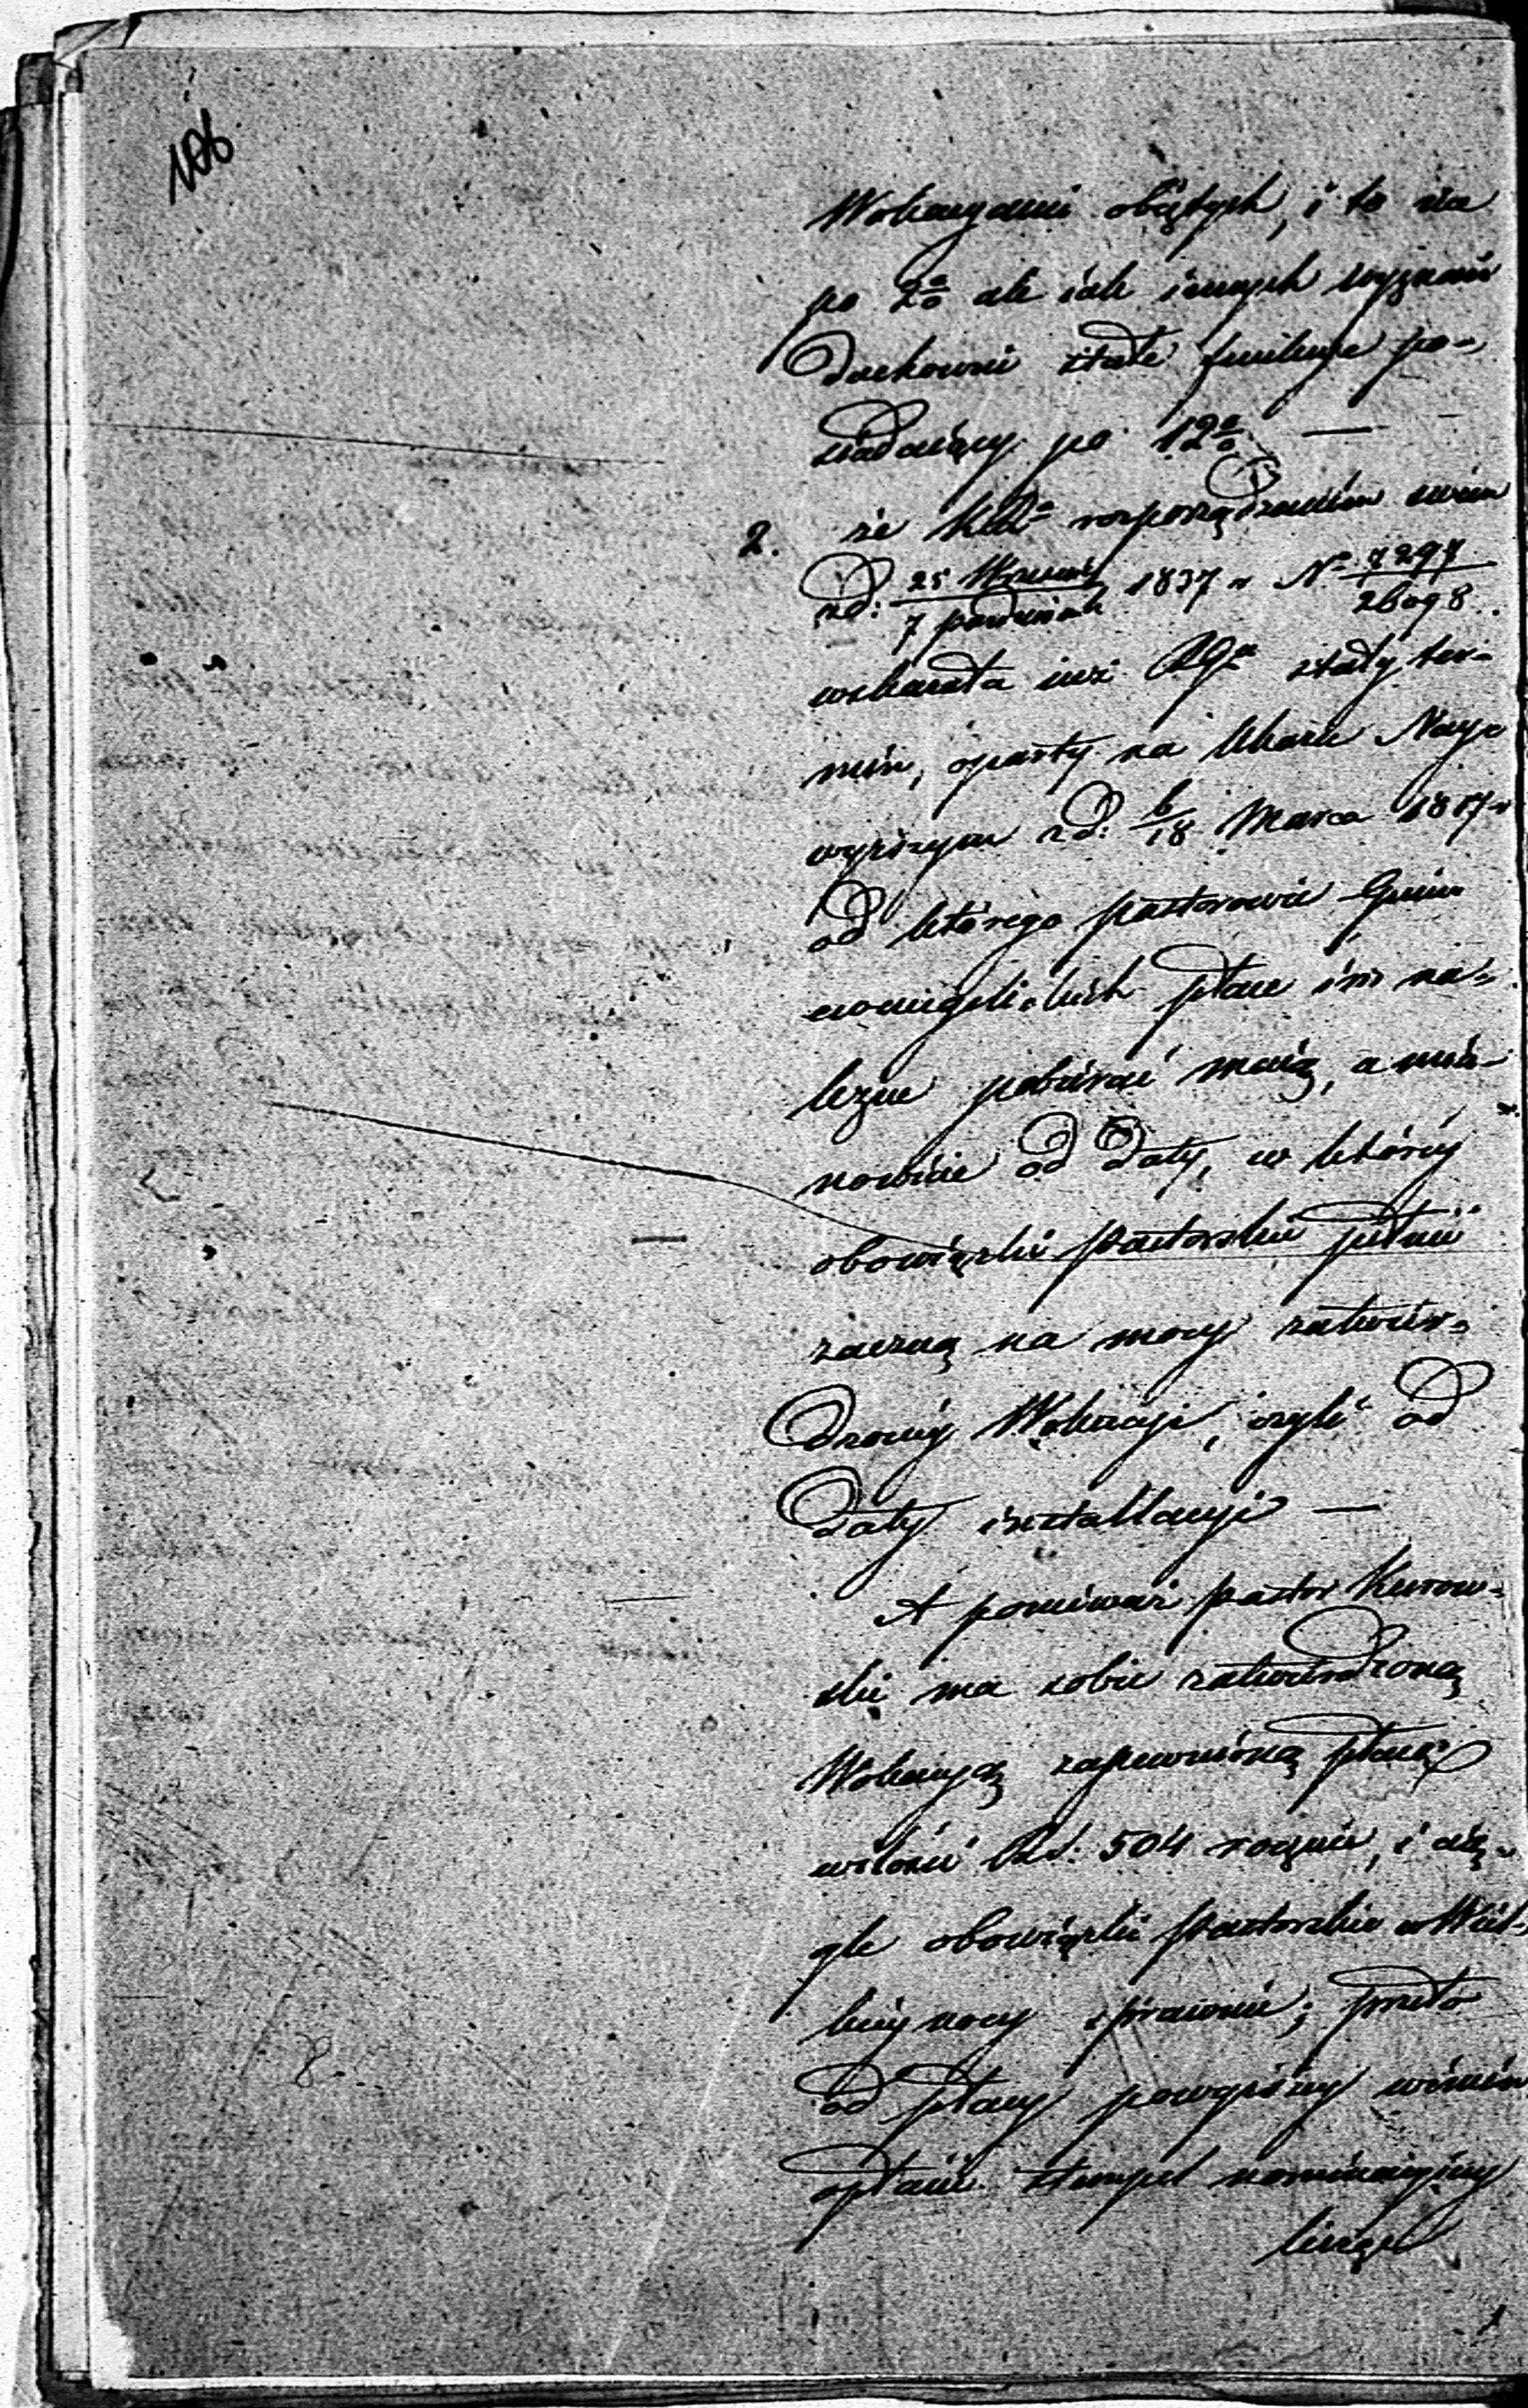 106
Wokacyami objętych, i to nie
po 2% ale jak innych wyznań
Duchowni stałe fundusze po-
siadaiący po 12% —
2. że KRz rozporządzeniem swém
z d: 25 Września/7 Października 1837 r N° 7297/26098.
wskazała iuż Rz stały ter-
min, oparty na Ukazie Nay-
wyższym z d: 6/18 Marca 1817 r
od którego pastorowie Gmin
ewangelickich płace im na-
leżne pobierać maią, a mia-
nowicie od daty, w któréy
obowiązki pastorskie pełnić
zaczną na mocy zatwier-
dzonéy Wokacyi, czyli od
daty installacyi —
A ponieważ pastor Kurow-
ski ma sobie zatwierdzoną
Wokacyą zapewnioną płacę
w ilości RS. 504 rocznie, i cią-
gle obowiązki pastorskie w Wiel-
kiéynocy sprawuie; przeto
od płacy powyższéy winien
opłacić stempel nominacyiny
licząc